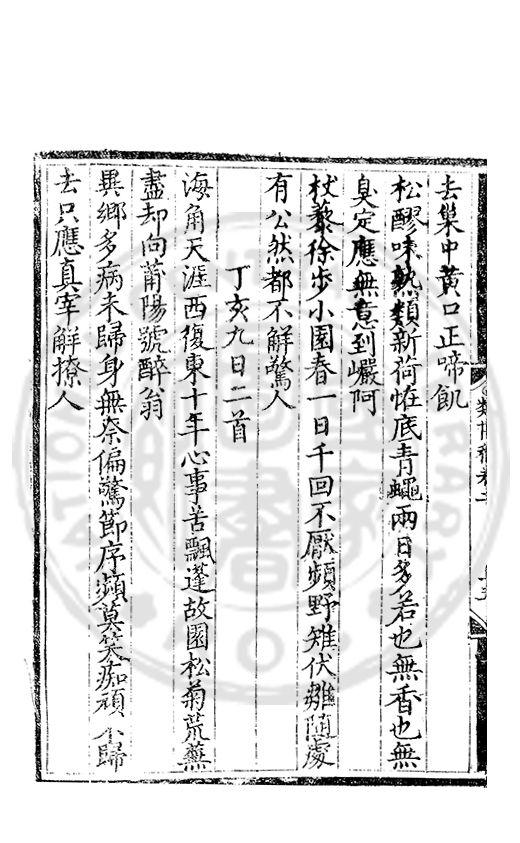 去巢中黃口正啼飢
松醪味熟類新荷帷底青蠅兩日多若也無香也無
臭定應無意到巖阿
杖藜徐步小園春一日千回不厭頻野雉伏雛隨處
有公然都不解驚人
丁亥九日二首
海角天涯西復東十年心事苦飄蓬故園松菊荒蕪
盡却向莆陽號醉翁
異鄉多病未歸身無奈偏驚節序頻莫笑痴頑不歸
去只應真宰解撩人